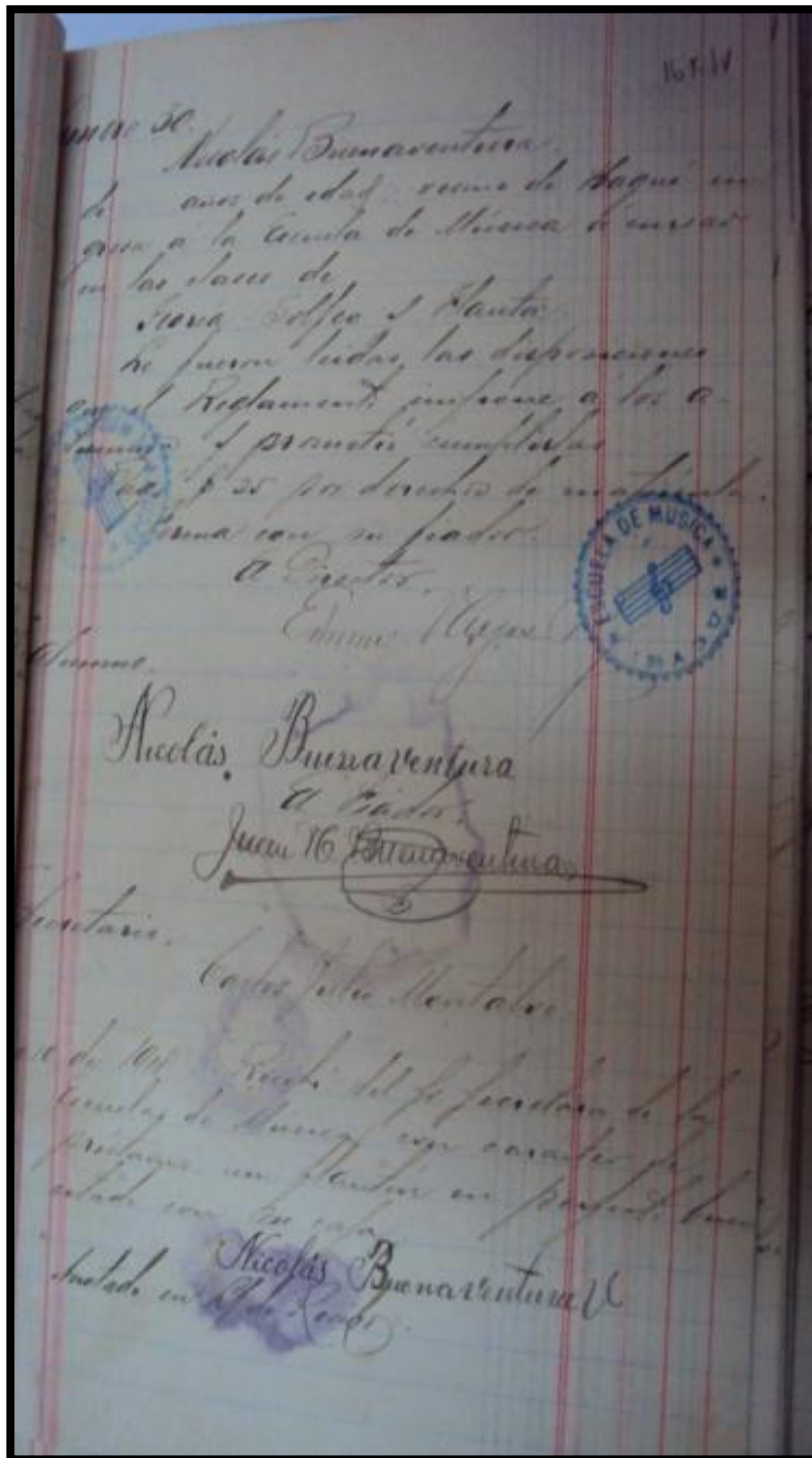 Nicolás Buenaventura
de años de edad, vecino de Ibagué in
gresa á la Escuela de Música á cursar
en las clases de
Teoría Solfeo y Flauta.
Le fueron leidas las disposiciones
que el Reglamento impone a los a-
lumnos y prometió cumplirlas
Pagó $ 25 por derechos de matrícula.
Firma con su fiador.
El Director,
ESCUELA DE MUSICA
Alumno,
Nicolás Buenaventura
El Fiador,
Juan N. Buenaventura
Secretario,
Carlos Julio Montalvo
de Recibí del Sr Secretario de la
Escuela de Musica, con caracter de
un flautín en perfecto buen
estado con su caja
Nicolás Buenaventura V
Anotado en